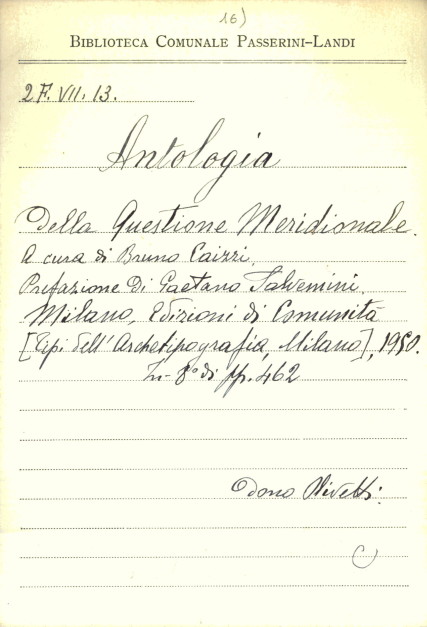 16)
BIBLIOTECA COMUNALE PASSERINI-LANDI
2F. VII. 13.
Antologia
Della Questione Meridionale.
A cura di Bruno Caizzi.
Prefazione Di Gaetano Salvemini.
Milano, Edizioni di Comunità
[Tipi dell'Archetipografia, Milano], 1950.
In-8° di pp. 462
Dono Olivetti.
C